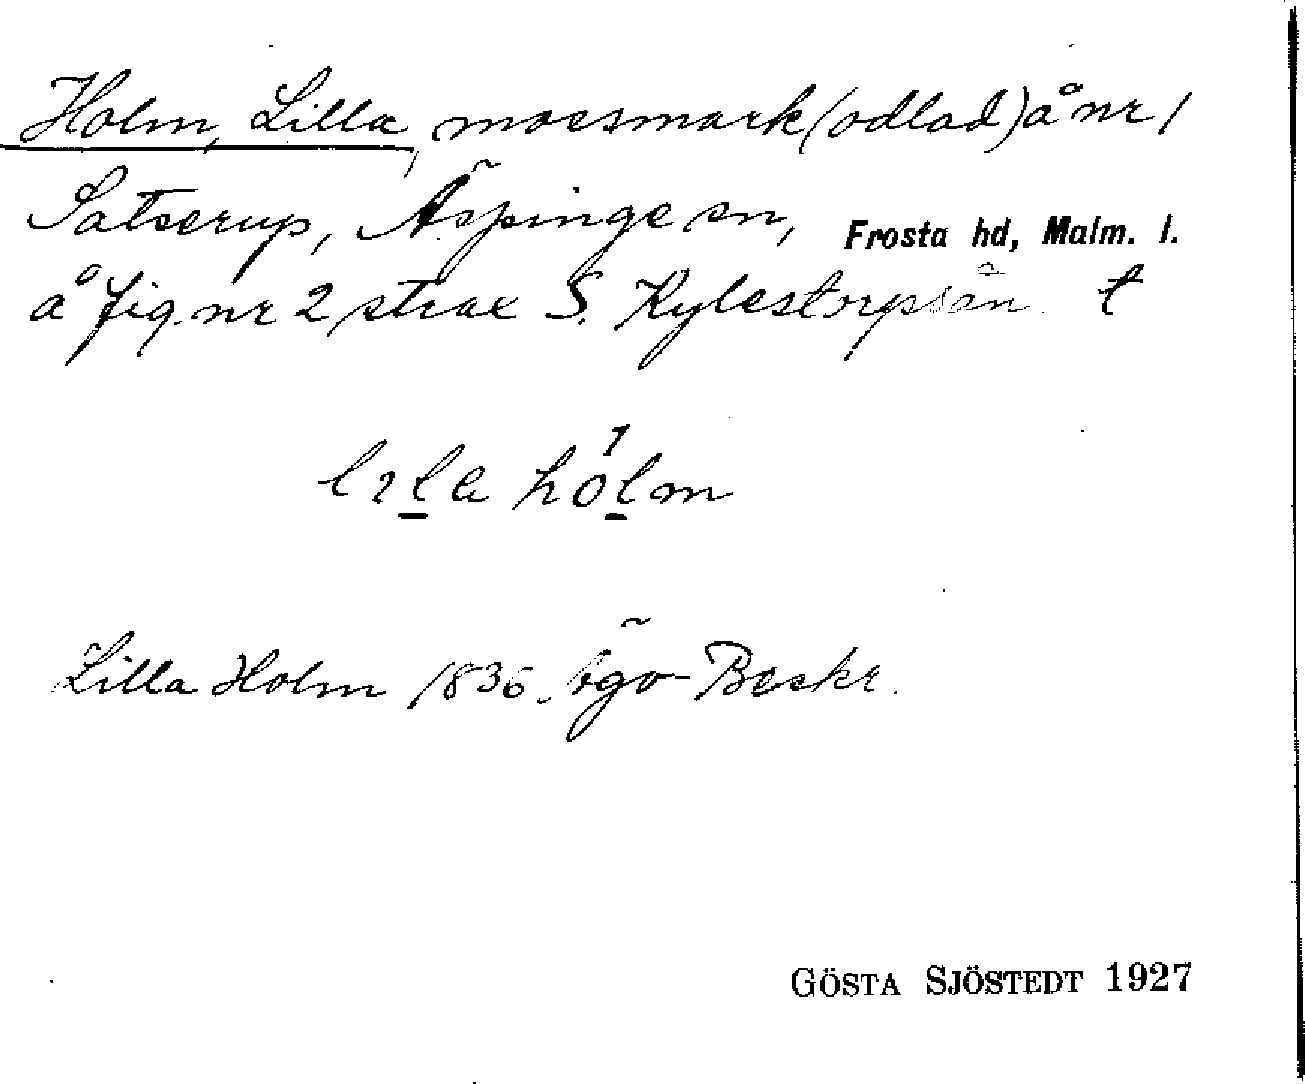 Holm, Lilla, mossmark (odlad) å nr 1
Satserup, Äspinge sn, Frosta hd, Malm. l.
å fig. nr 2, strax S. Kylestorpsån. t
lɩla hólm
Lilla Holm 1836. ägo-Beskr.
GÖSTA SJÖSTEDT 1927